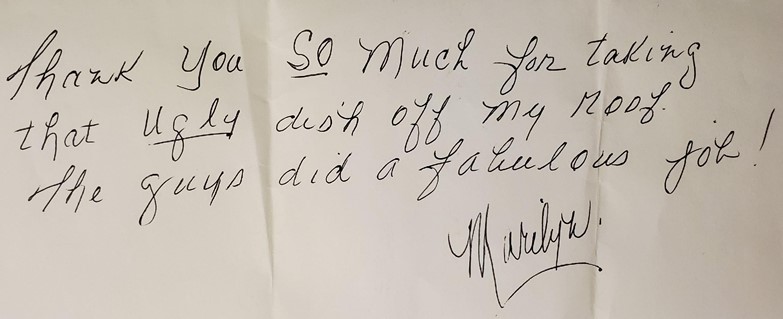 Thank you SO Much for taking
that ugly dish off my roof.
The guys did a fabulous job!
Marilyn.